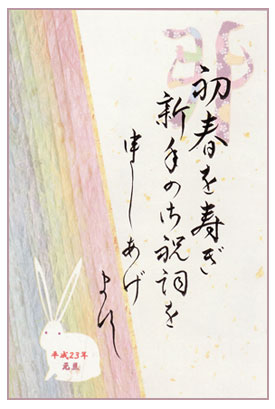 卯
初春を寿ぎ
新年の御祝詞を
申しあげ
ます
平成23年
元旦